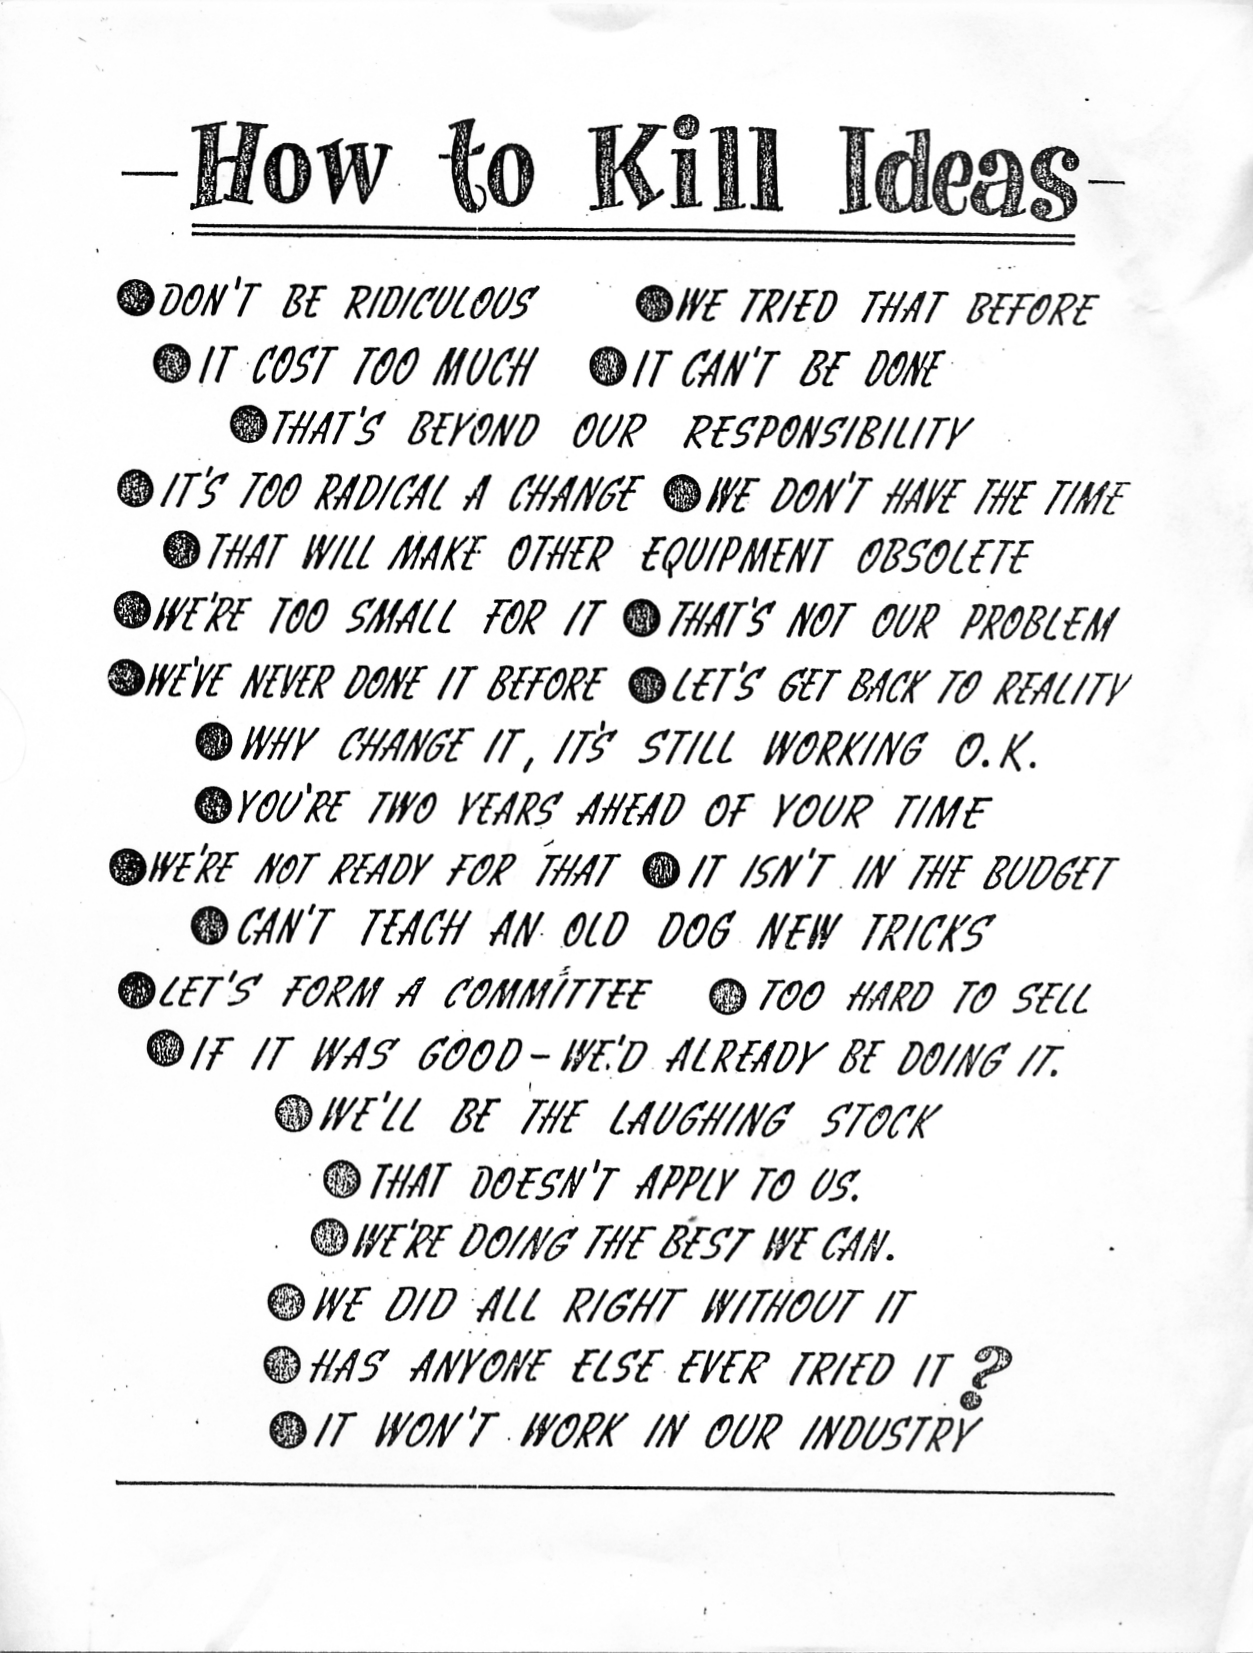 — How to Kill Ideas —
● DON'T BE RIDICULOUS ● WE TRIED THAT BEFORE
● IT COST TOO MUCH ● IT CAN'T BE DONE
● THAT'S BEYOND OUR RESPONSIBILITY
● IT'S TOO RADICAL A CHANGE ● WE DON'T HAVE THE TIME
● THAT WILL MAKE OTHER EQUIPMENT OBSOLETE
● WE'RE TOO SMALL FOR IT ● THAT'S NOT OUR PROBLEM
● WE'VE NEVER DONE IT BEFORE ● LET'S GET BACK TO REALITY
● WHY CHANGE IT, IT'S STILL WORKING O.K.
● YOU'RE TWO YEARS AHEAD OF YOUR TIME
● WE'RE NOT READY FOR THAT ● IT ISN'T IN THE BUDGET
● CAN'T TEACH AN OLD DOG NEW TRICKS
● LET'S FORM A COMMITTEE ● TOO HARD TO SELL
● IF IT WAS GOOD – WE'D ALREADY BE DOING IT.
● WE'LL BE THE LAUGHING STOCK
● THAT DOESN'T APPLY TO US.
● WE'RE DOING THE BEST WE CAN.
● WE DID ALL RIGHT WITHOUT IT
● HAS ANYONE ELSE EVER TRIED IT?
● IT WON'T WORK IN OUR INDUSTRY